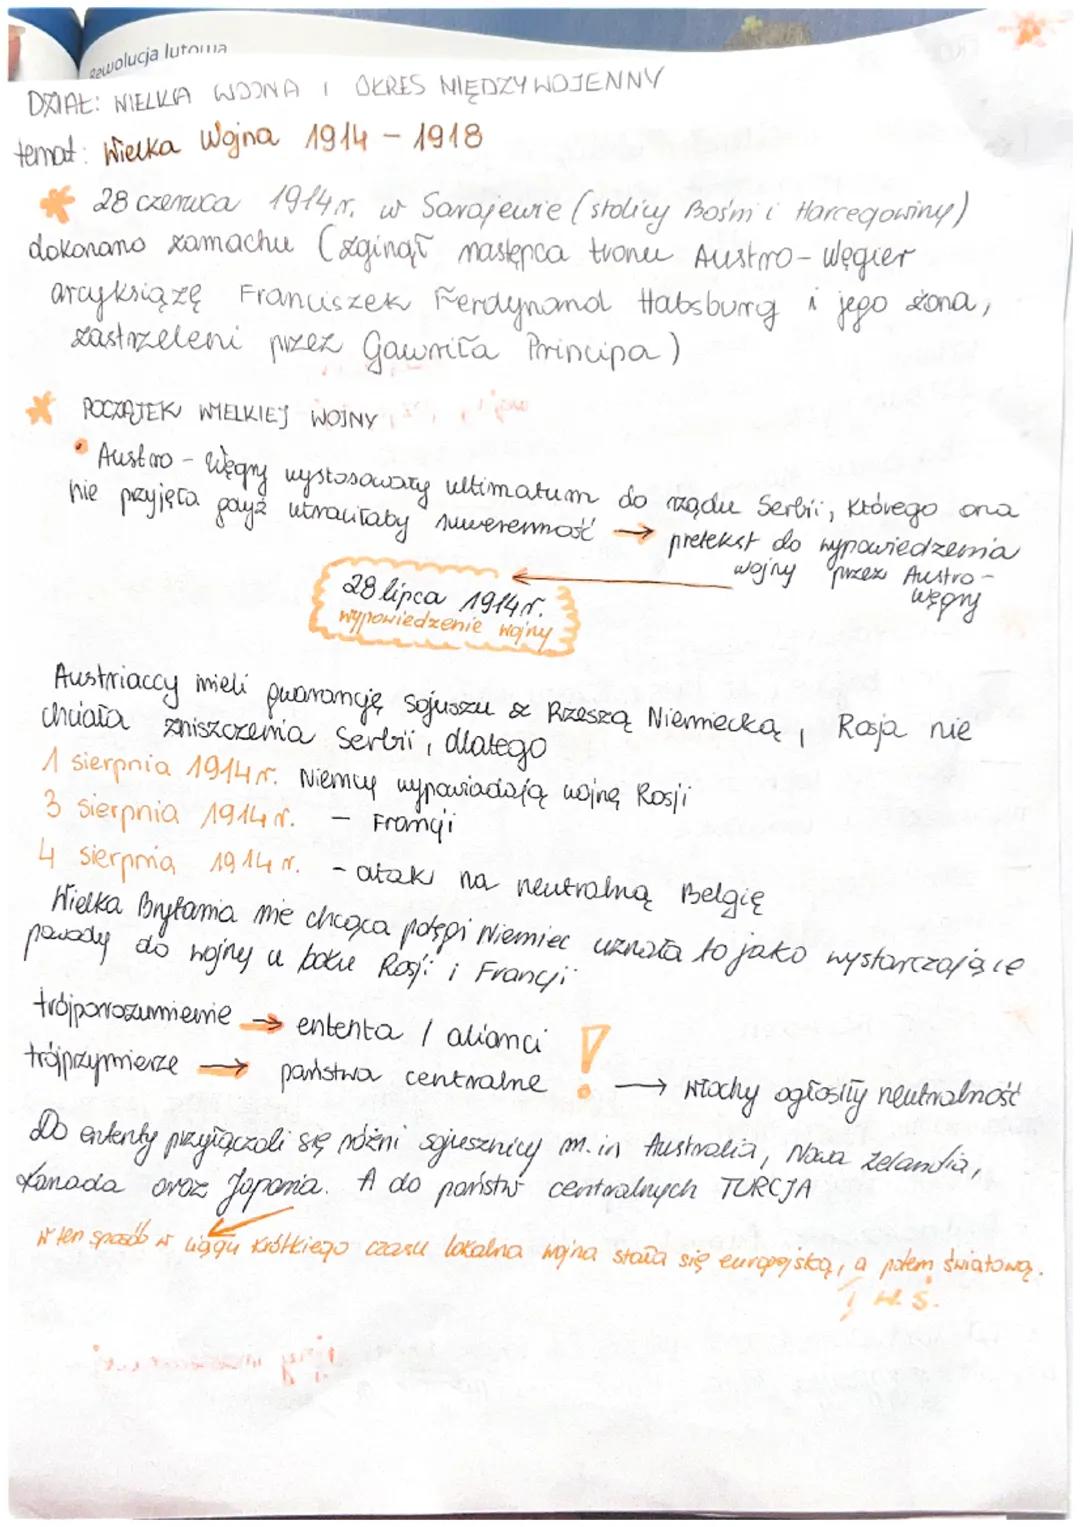 Rewolucja lutowa
DZIAŁ: WIELKA WOJNA I OKRES MIĘDZYWOJENNY
temat: Wielka Wojna 1914 - 1918
28 czerwca 1914 r. w Sarajewie (stolicy Bośni i Harcegowiny)
dokonano zamachu (zginął następca tronu Austro-Węgier
arcyksiążę Franciszek Ferdynand Habsburg i jego żona,
zastrzeleni przez Gawriła Principa)
POCZĄTEK WIELKIEJ WOJNY
• Austro-Węgry wystosowały ultimatum do rządu Serbii, którego ona
nie przyjęła gdyż utraciłaby suwerenność → pretekst do wypowiedzenia
wojny przez Austro-
Węgry
28 lipca 1914 r.
wypowiedzenie wojny
Austriaccy mieli gwarancję sojuszu z Rzeszą Niemiecką, Rosja nie
chciała zniszczenia Serbii, dlatego
1 sierpnia 1914 r. Niemcy wypowiadają wojnę Rosji
3 sierpnia 1914 r. - Francji
4 sierpnia 1914 r. - atak na neutralną Belgię
Wielka Brytania nie chcąca potęgi Niemiec uznała to jako wystarczające
powody do wojny u boku Rosji i Francji
trójporozumienie → ententa / alianci !
trójprzymierze → państwa centralne → Włochy ogłosiły neutralność
Do ententy przyłączali się różni sojusznicy m.in Australia, Nowa Zelandia,
Kanada oraz Japonia. A do państw centralnych TURCJA
W ten sposób w ciągu krótkiego czasu lokalna wojna stała się europejską, a potem światową.
I W.Ś.